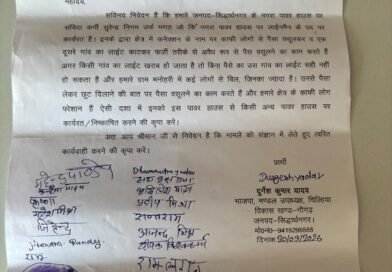 महोदय,
सविनय निवेदन है कि हमारे जनपद-सिद्धार्थनगर के नगरा पावर हाउस पर
संविदा कर्मी सुरेन्द्र निगम उर्फ भगत जो कि नगरा पावर हाउस पर लाईनमैन के पद पर
कार्यरत है। इनके द्वारा क्षेत्र में कनेक्शन के नाम पर काफी लोगों से पैसा वसूलकर व एक
दूसरे गांव का लाईट काटकर फर्जी तरीके से अवैध रूप से पैसा वसूलने का काम करते है
अगर किसी गांव का लाईट खराब हो जाता है तो बिना पैसे का उस गांव का लाईट सही नहीं
हो सकता है और हमारे ग्राम मनोहरी में कई लोगों के बिल, जिनका ज्यादा है। उनसे पैसा
लेकर छूट दिलाने की बात पर पैसा वसूलने का काम करते है और हमारे क्षेत्र के काफी लोग
परेशान हैं ऐसी दशा में इनको इस पावर हाउस से किसी अन्य पावर हाउस पर
कार्यरत/निष्कासित करने की कृपा करें।
अतः आप श्रीमान जी से निवेदन है कि मामले को संज्ञान में लेते हुए त्वरित
कार्यवाही करने की कृपा करें।
प्रार्थी
Durgesh yadav
दुर्गेश कुमार यादव
भाजपा, मण्डल उपाध्यक्ष, चिल्हिया
विकास खण्ड-नौगढ़
जनपद-सिद्धार्थनगर।
मो०नं०-9415295555
दिनांक 20/03/2026
Dharmendra yadav
प्रदीप मिश्रा
आनन्द मिश्र
दीपक विश्वकर्मा
Jitendra Pandey